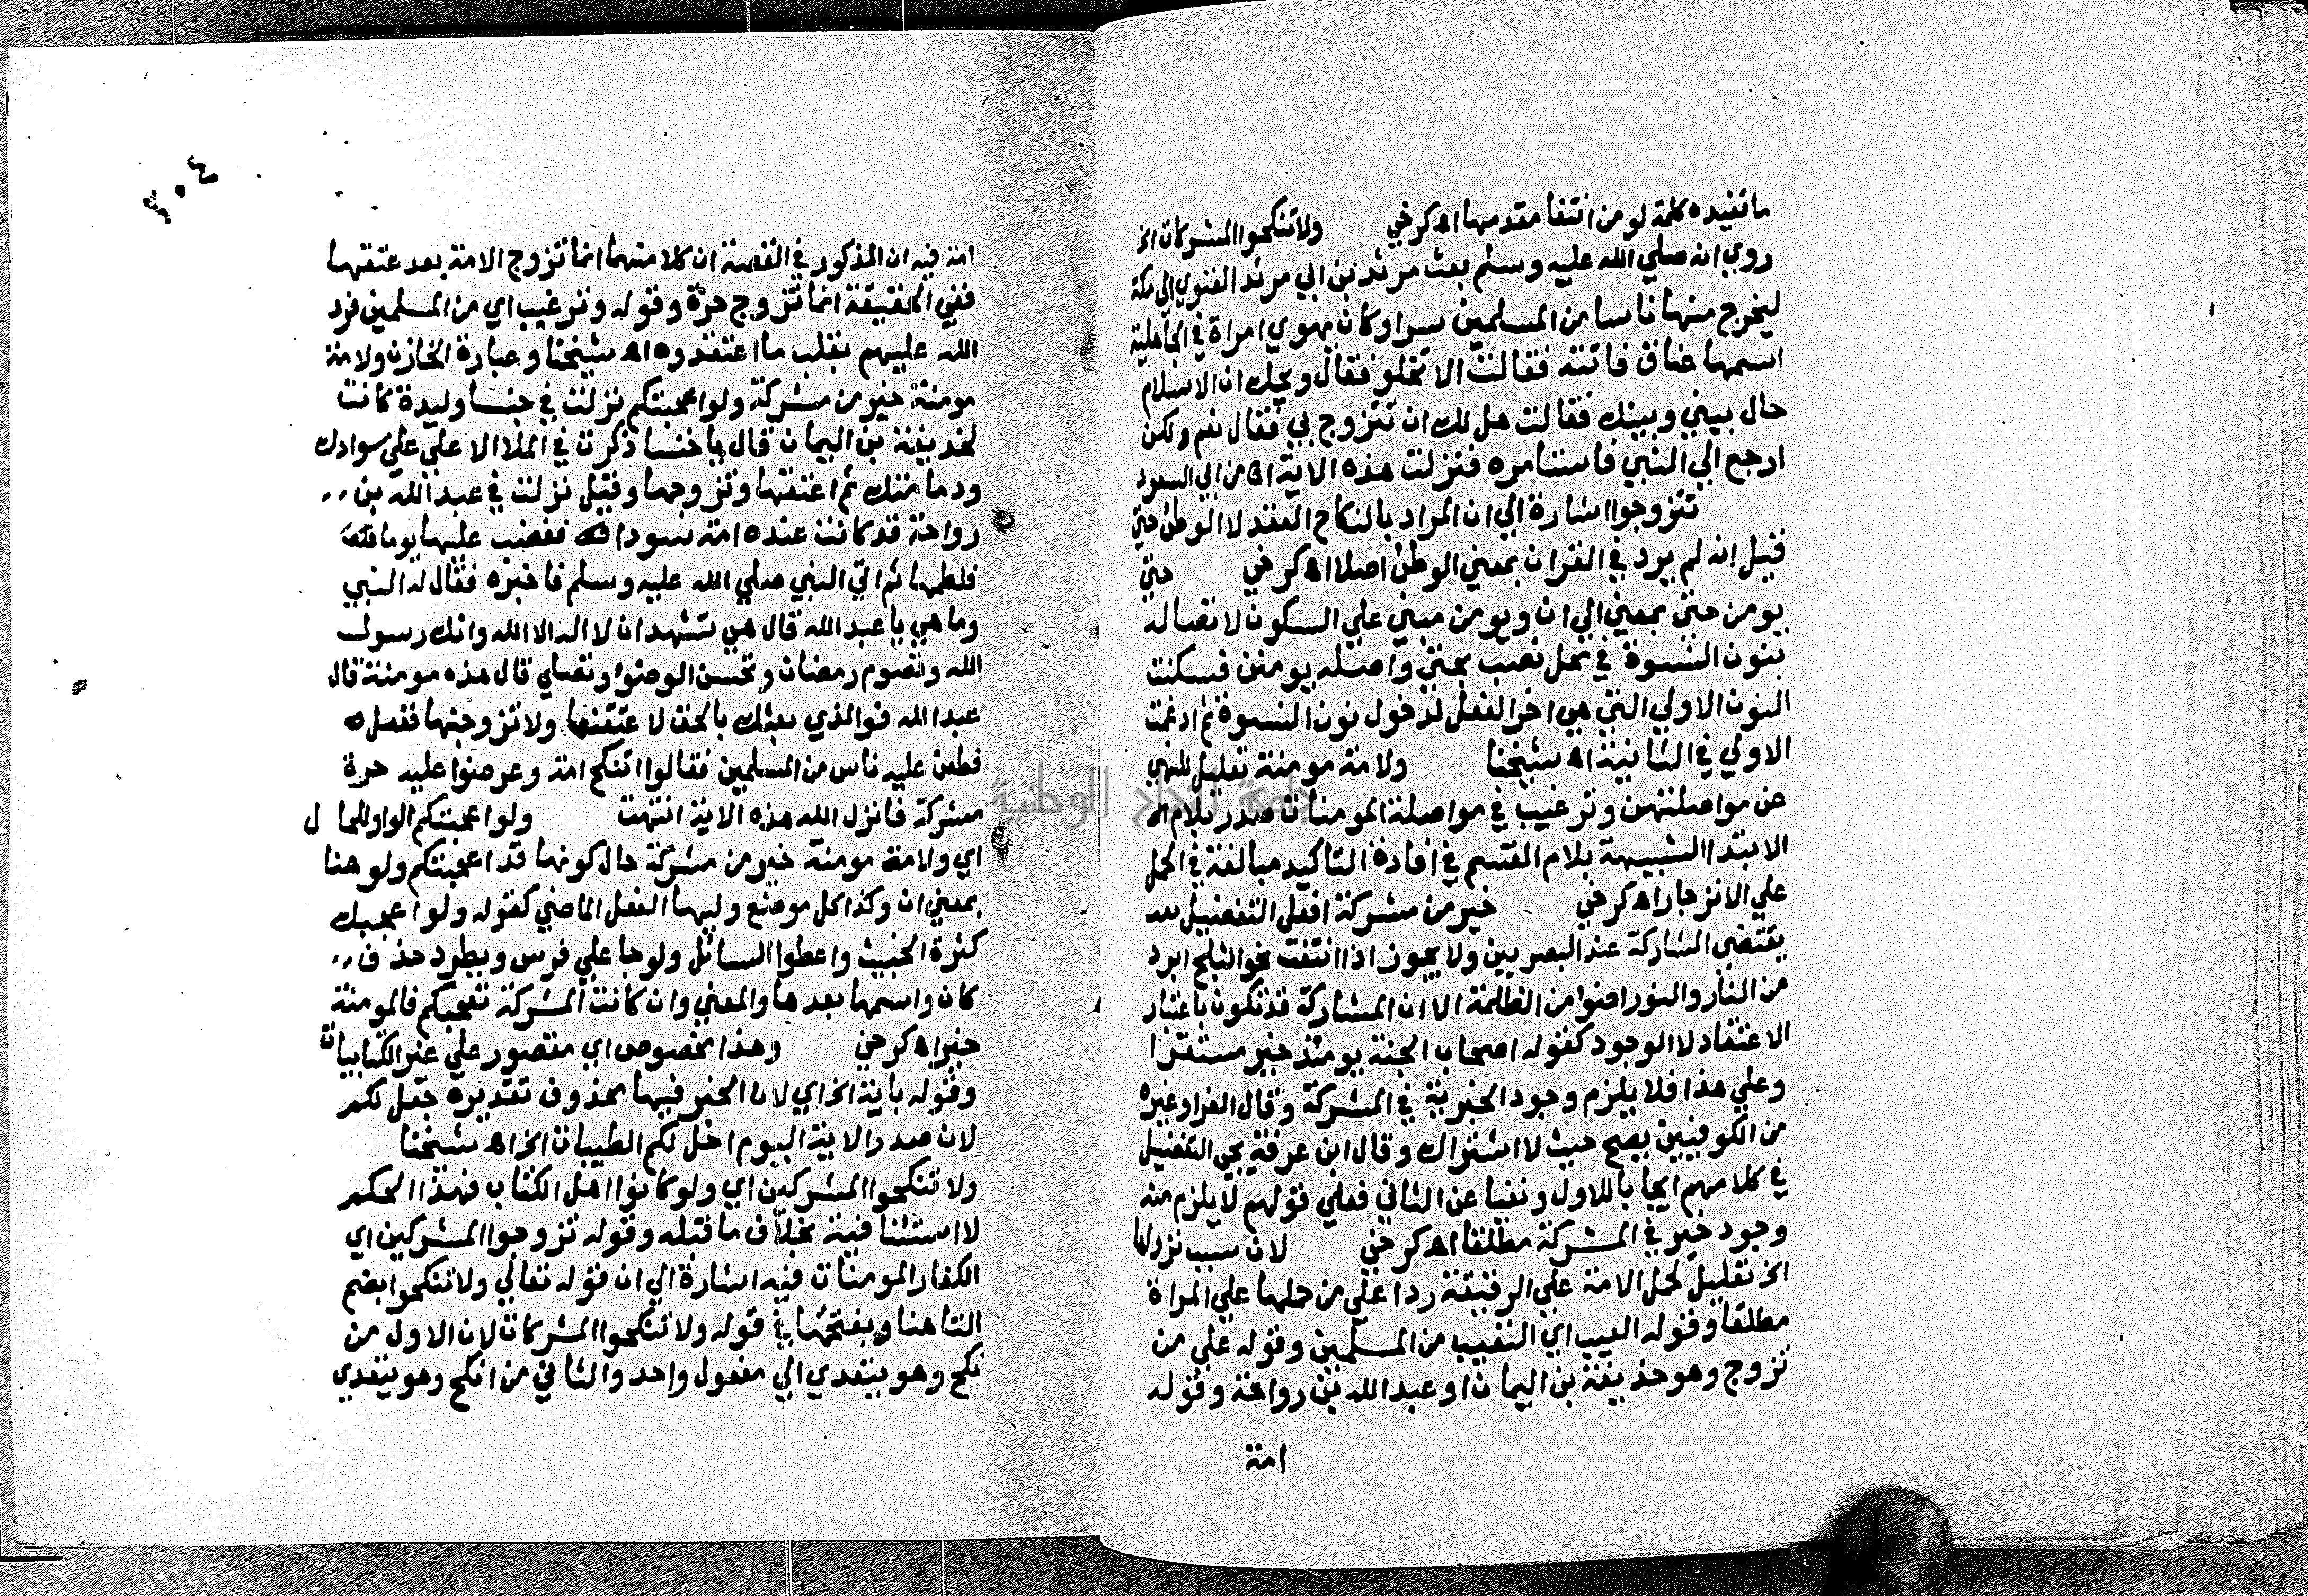 ما تفيده كلمة لو من انتفا مقدمها اه كرخي ولا تنكحوا المشركات الخ
روي انه صلي الله عليه وسلم بعث مرثد بن ابي مرثد الغنوي الي مكة
ليخرج منها ناسا من المسلمين سرا وكان يهوي امراة في الجاهلية
اسمها عناق فاتته فقالت الا تخلو فقال ويحك ان الاسلام
حال بيني وبينك فقالت هل لك ان تتزوج بي فقال نعم ولكن
ارجع الي النبي فاستامره فنزلت هذه الاية اه من ابي السعود
تتزوجوا اشارة الي ان المراد بالنكاح العقد لا الوطئ حتي
قيل انه لم يرد في القران بمعني الوطئ اصلا اه كرخي حتي
يومن حتي بمعني الي ان ويومن مبني علي السكون لاتصاله
بنون النسوة في محل نصب بحتي واصله يومنن فسكنت
النون الاولي التي هي اخر الفعل لدخول نون النسوة ثم ادغمت
الاولي في الثانية اه شيخنا ولامة مومنة تعليل للنهي
عن مواصلتهن وترغيب في مواصلة المومنات صدر بلام
الابتدا الشبيهة بلام القسم في افادة التاكيد مبالغة في الحمل
علي الانزجار اه كرخي خير من مشركة افعل التفضيل
يقتضي المشاركة عند البصريين ولا يجوز اذا انتفت نحو الثلج ابرد
من النار والنور اضوا من الظلمة الا ان المشاركة قد تكون باعتبار
الاعتقاد لا الوجود كقوله اصحاب الجنة يومئذ خير مستقرا
وعلي هذا فلا يلزم وجود الخيرية في المشركة وقال الفرا وغيره
من الكوفيين يصح حيث لا اشتراك وقال ابن عرفة يجي التفضيل
في كلامهم ايجابا للاول ونفيا عن الثاني فعلي قولهم لا يلزم منه
وجود خير في المشركة مطلقا اه كرخي لان سبب نزولها
الخ تعليل لحمل الامة علي الرقيقة ردا علي من حملها علي المراة
مطلقا وقوله العيب اي التعييب من المسلمين وقوله علي من
تزوج وهو حذيفة بن اليمان او عبد الله بن رواحة وقوله
امة
٣٠٤
امة فيه ان المذكور في القصة ان كلا منهما انما تزوج الامة بعد عتقها
ففي الحقيقة انما تزوج حرة وقوله وترغيب اي من المسلمين فرد
الله عليهم بقلب ما اعتقدوه اه شيخنا وعبارة الخازن ولامة
مومنة خير من مشركة ولو اعجبتكم نزلت في خنسا وليدة كانت
لحذيفة بن اليمان قال يا خنسا ذكرت في الملا الاعلي علي سوادك
ودمامتك ثم اعتقها وتزوجها وقيل نزلت في عبد الله بن
رواحة قد كانت عنده امة سودا فغضب عليها يوما
فلطمها ثم اتي النبي صلي الله عليه وسلم فاخبره فقال له النبي
وما هي يا عبد الله قال هي تشهد ان لا اله الا الله وانك رسول
الله وتصوم رمضان وتحسن الوضوا وتصلي قال هذه مومنة قال
عبد الله فوالذي بعثك بالحق لاعتقنها ولاتزوجنها ففعل
فطعن عليه ناس من المسلمين فقالوا اتنكح امة وعرضوا عليه حرة
مشركة فانزل الله هذه الاية انتهت ولو اعجبتكم الواو للحال
اي ولامة مومنة خير من مشركة حال كونها قد اعجبتكم ولو هنا
بمعني ان وكذا كل موضع وليها الفعل الماضي كقوله ولو اعجبك
كثرة الخبيث واعطوا السائل ولو جا علي فرس ويطرد حذف
كان واسمها بعدها والمعني وان كانت المشركة تعجبكم فالمومنة
خير اه كرخي وهذا مخصوص اي مقصور علي غير الكتابيات
وقوله باية الخ اي لان الخبر فيها محذوف تقديره حل لكم
لان صدر الاية اليوم احل لكم الطيبات الخ اه شيخنا
ولا تنكحوا المشركين اي ولو كانوا اهل الكتاب فهذا الحكم
لا استثنا فيه بخلاف ما قبله وقوله تزوجوا المشركين اي
الكفار المومنات فيه اشارة الي ان قوله تعالي ولا تنكحوا بضم
التا هنا وبفتحها في قوله ولا تنكحوا المشركات لان الاول من
نكح وهو يتعدي الي مفعول واحد والثاني من انكح وهو يتعدي
جامعة النجاح الوطنية